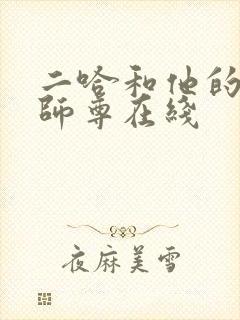 二哈和他的
師尊在綫
夜麻美雪